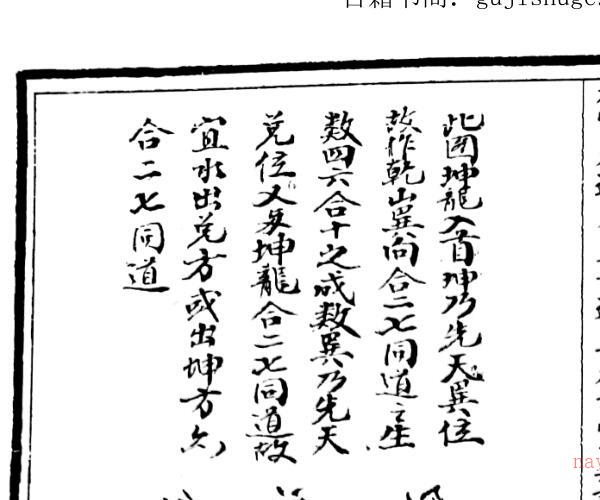 古籍书阁：gujishuge
此图坤龍入首坤乃先天巽位
故作乾山巽向合二七同道之生
数四六合十之成数巽乃先天
兑位又兴坤龍合二七同道故
宜水出兑方或出坤方亦
合二七同道
nay